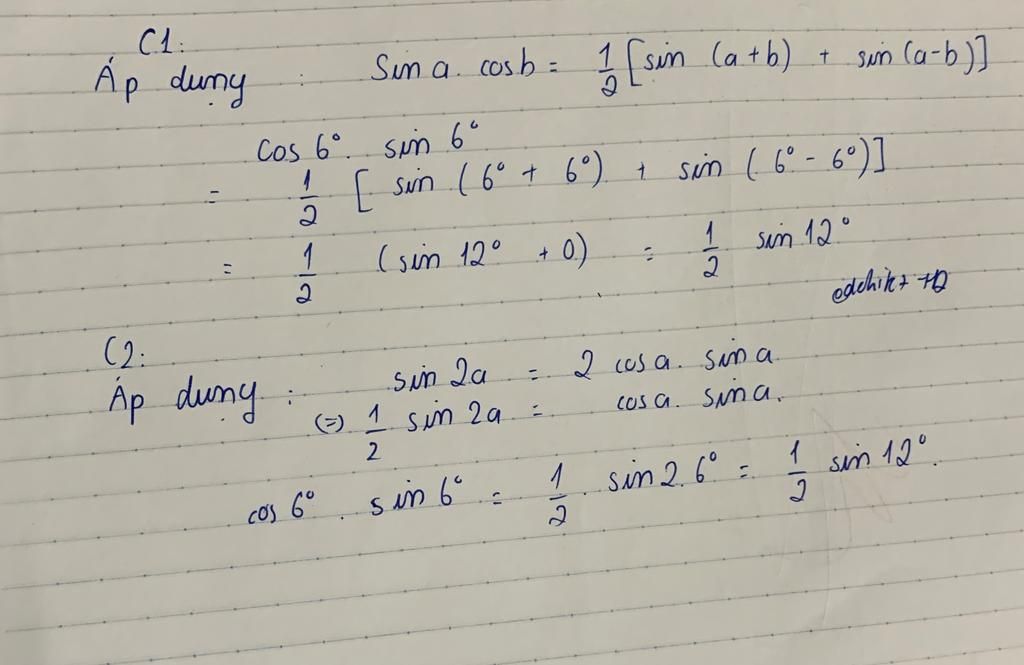 C1:
Áp dụng : Sin a. cos b = 1/2 [sin (a+b) + sin (a-b)]
cos 6°. sin 6°
= 1/2 [ sin ( 6° + 6°) + sin ( 6° - 6°)]
= 1/2 (sin 12° + 0) = 1/2 sin 12°
C2:
Áp dụng : sin 2a = 2 cos a. sin a
(=) 1/2 sin 2a = cos a. sin a.
cos 6° . sin 6° = 1/2 . sin 2.6° = 1/2 sin 12°.